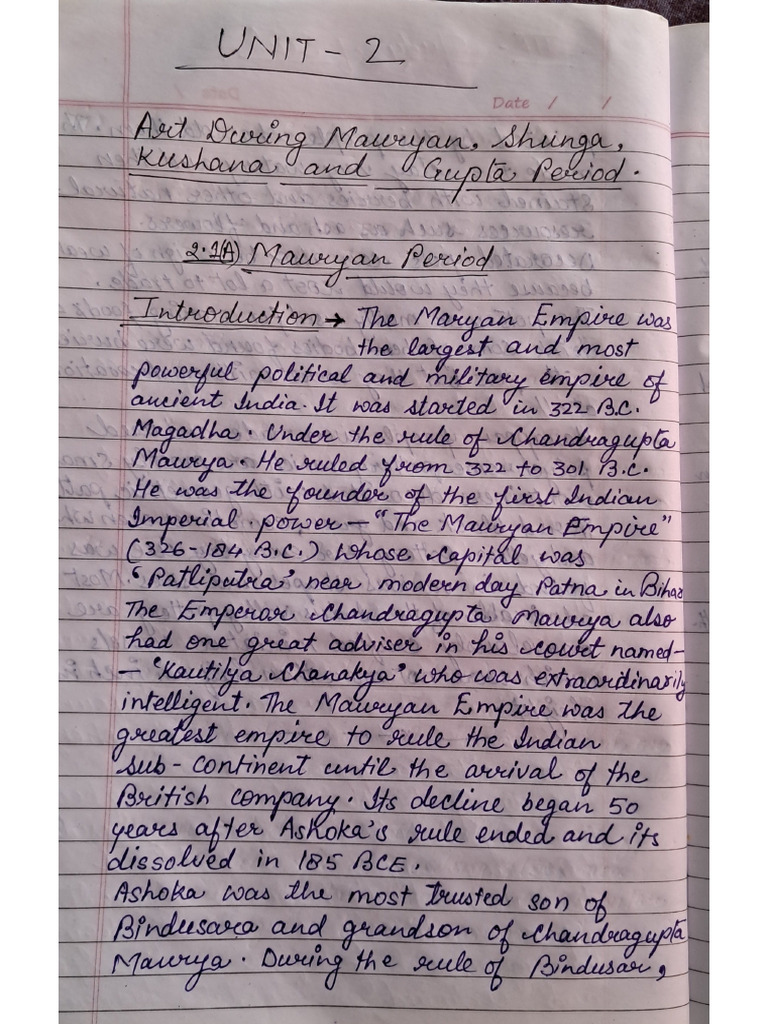 UNIT - 2
Date / /
Art During Mauryan, Shunga,
Kushana and Gupta Period.
2.1(A) Mauryan Period
Introduction → The Maryan Empire was
the largest and most
powerful political and military empire of
ancient India. It was started in 322 B.C.
Magadha. Under the rule of Chandragupta
Maurya. He ruled from 322 to 301 B.C.
He was the founder of the first Indian
Imperial power — "The Mauryan Empire"
(326-184 B.C.) whose capital was
'Patliputra' near modern day Patna in Bihar
The Emperor Chandragupta Maurya also
had one great adviser in his court named-
- 'Kautilya Chanakya' who was extraordinarily
intelligent. The Mauryan Empire was the
greatest empire to rule the Indian
sub-continent until the arrival of the
British company. Its decline began 50
years after Ashoka's rule ended and its
dissolved in 185 BCE.
Ashoka was the most trusted son of
Bindusara and grandson of Chandragupta
Maurya. During the rule of Bindusar,